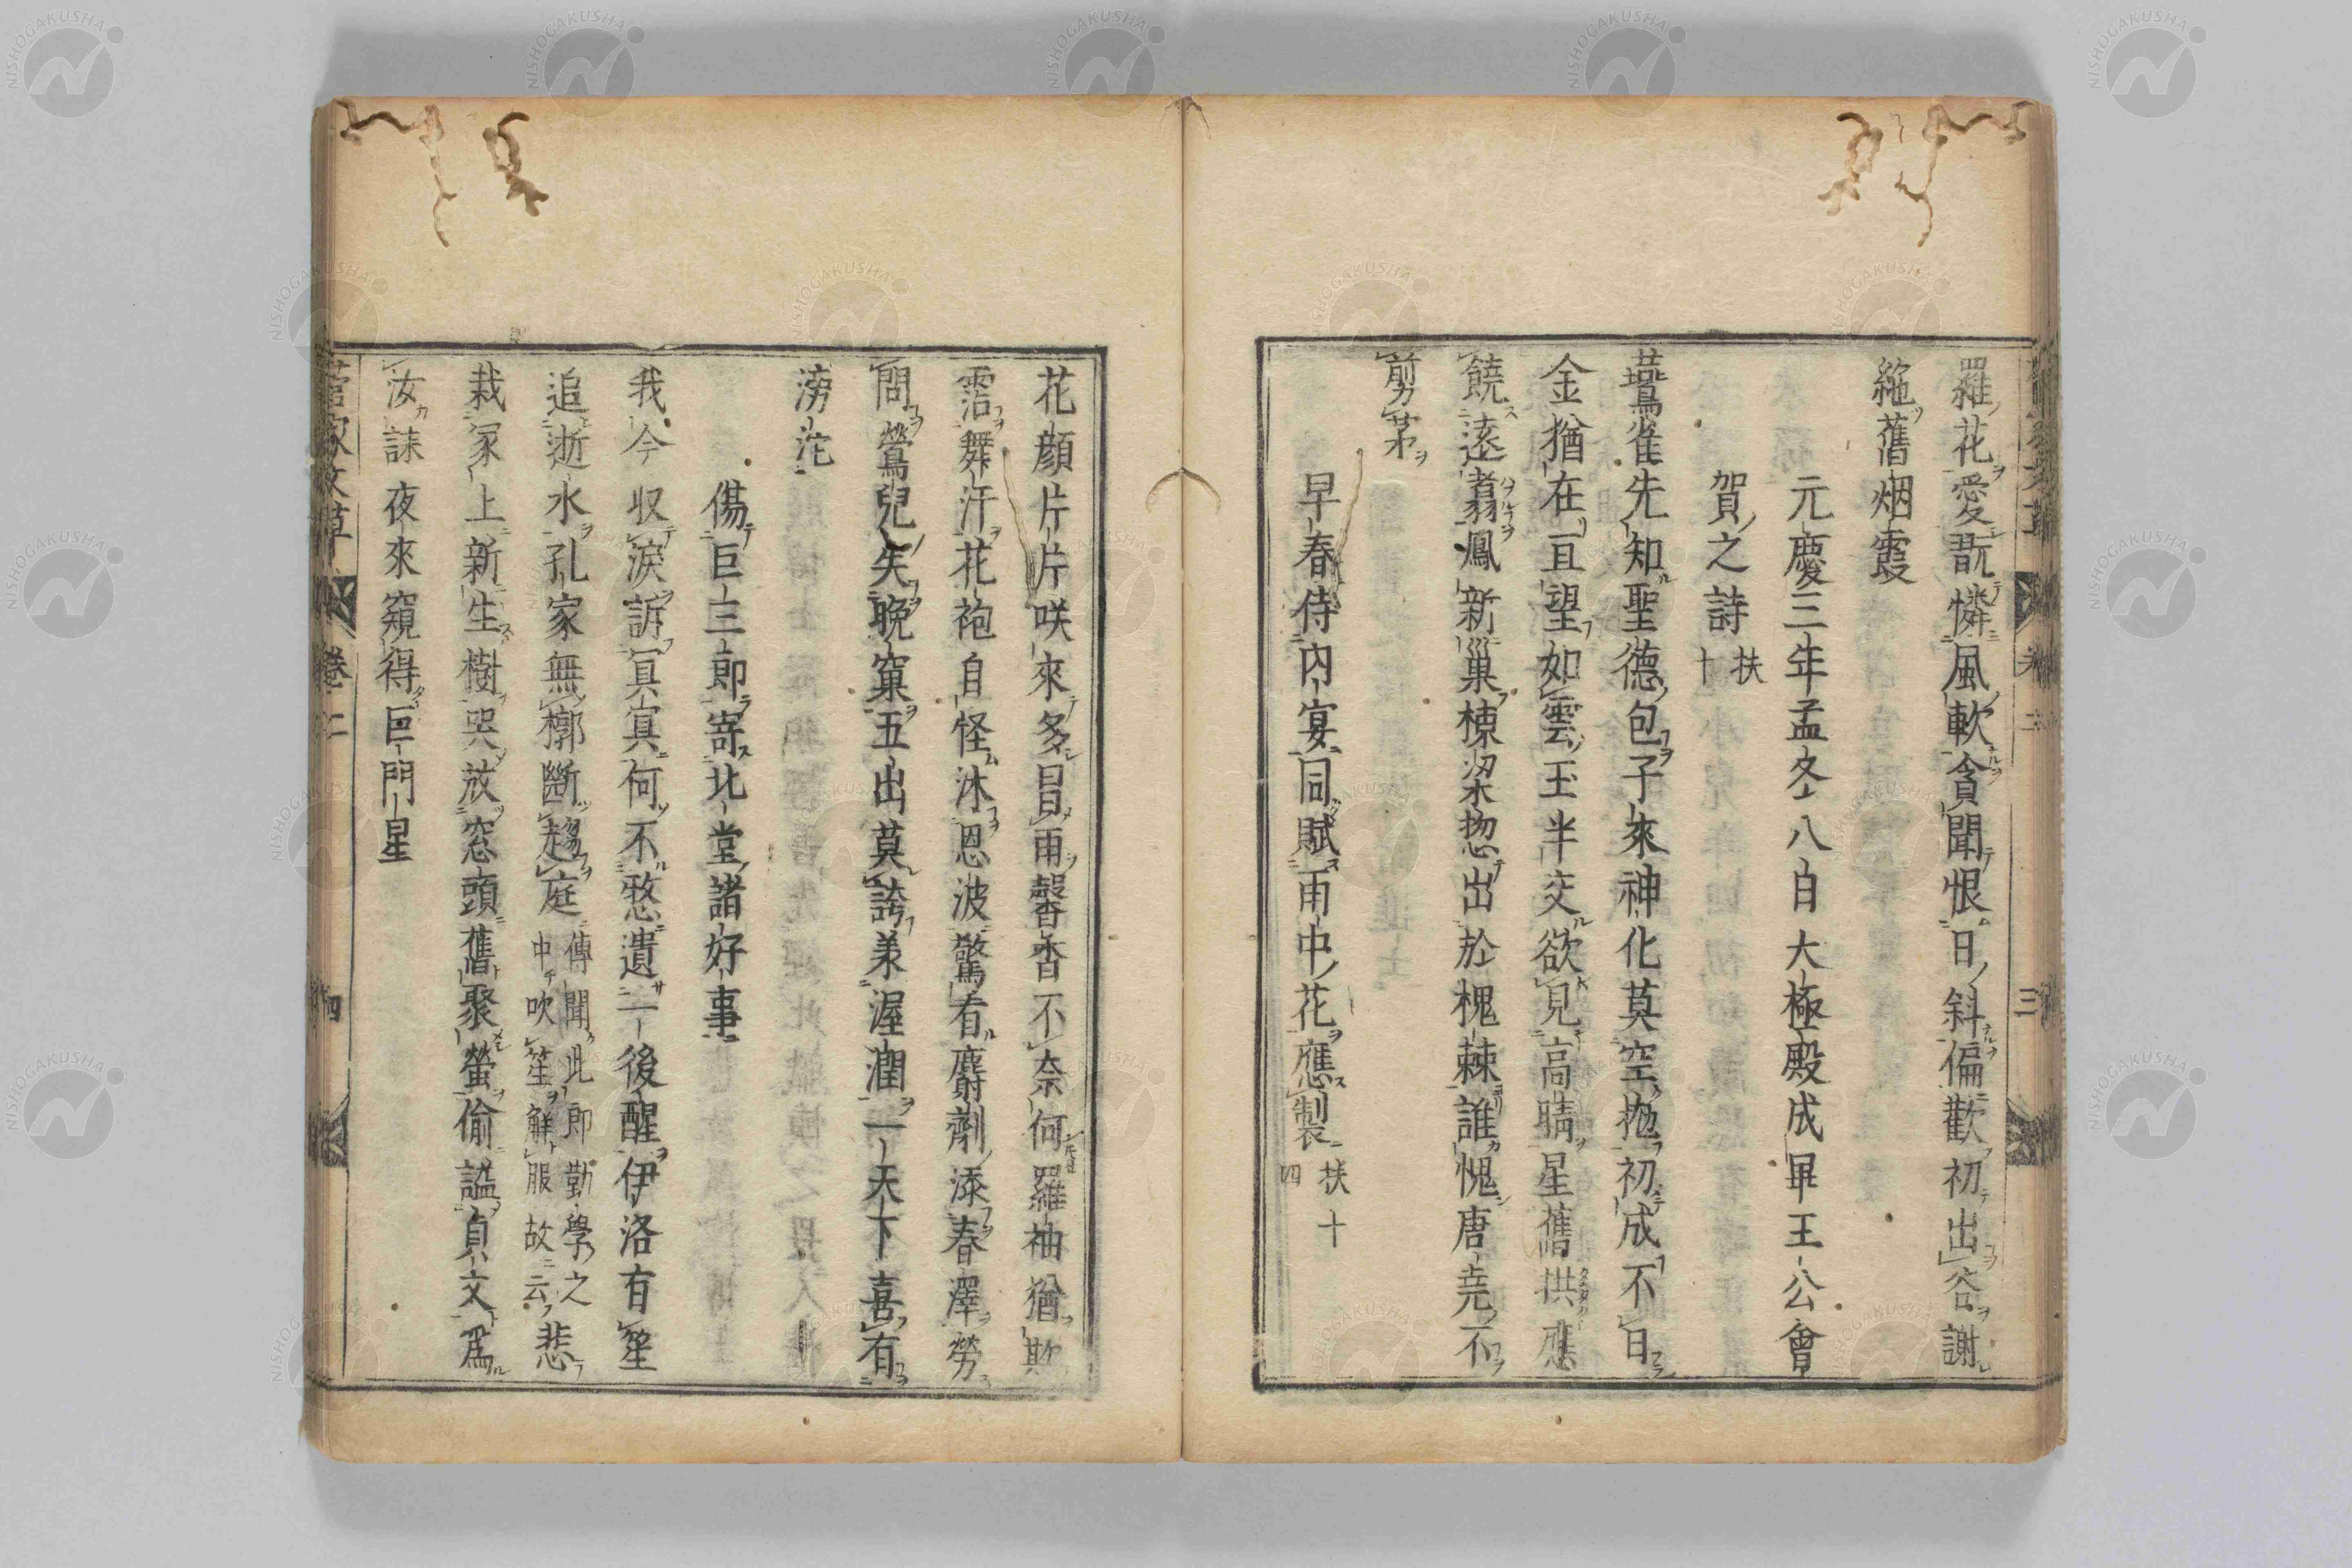 羅花愛翫憐風軟貪聞恨日斜偏歡初出谷謝
絁舊烟霞
元慶三年孟冬八日大極殿成畢王公會
賀之詩 扶十
鷰雀先知聖德包子來神化莫空抛初成不日
金猶在且望如雲玉半交欲見高晴星舊拱應
饒遠翥鳳新巢棟梁惣出於槐棘誰愧唐尭不
剪茅
早春侍內宴同賦雨中花應製 扶十四
花顏片片咲來多冒雨馨香不奈何羅袖猶欺
霑舞汗花袍自怪沐恩波驚看麝劑添春澤勞
問鶯兒失晚窠五出莫誇承渥潤一天下喜有
滂沱
傷巨三郎寄北堂諸好事
我今収淚訴冥寞何不憖遺一後醒伊洛有笙
追逝水孔家無槨斷趍庭 傳聞此郎勤學之中吹笙鮮服故云 悲
栽冢上新生樹哭放窓頭舊聚螢偷謚貞文爲
汝誄夜來窺得巨門星
菅家文草 卷二 四
三
NISHOGAKUSHA